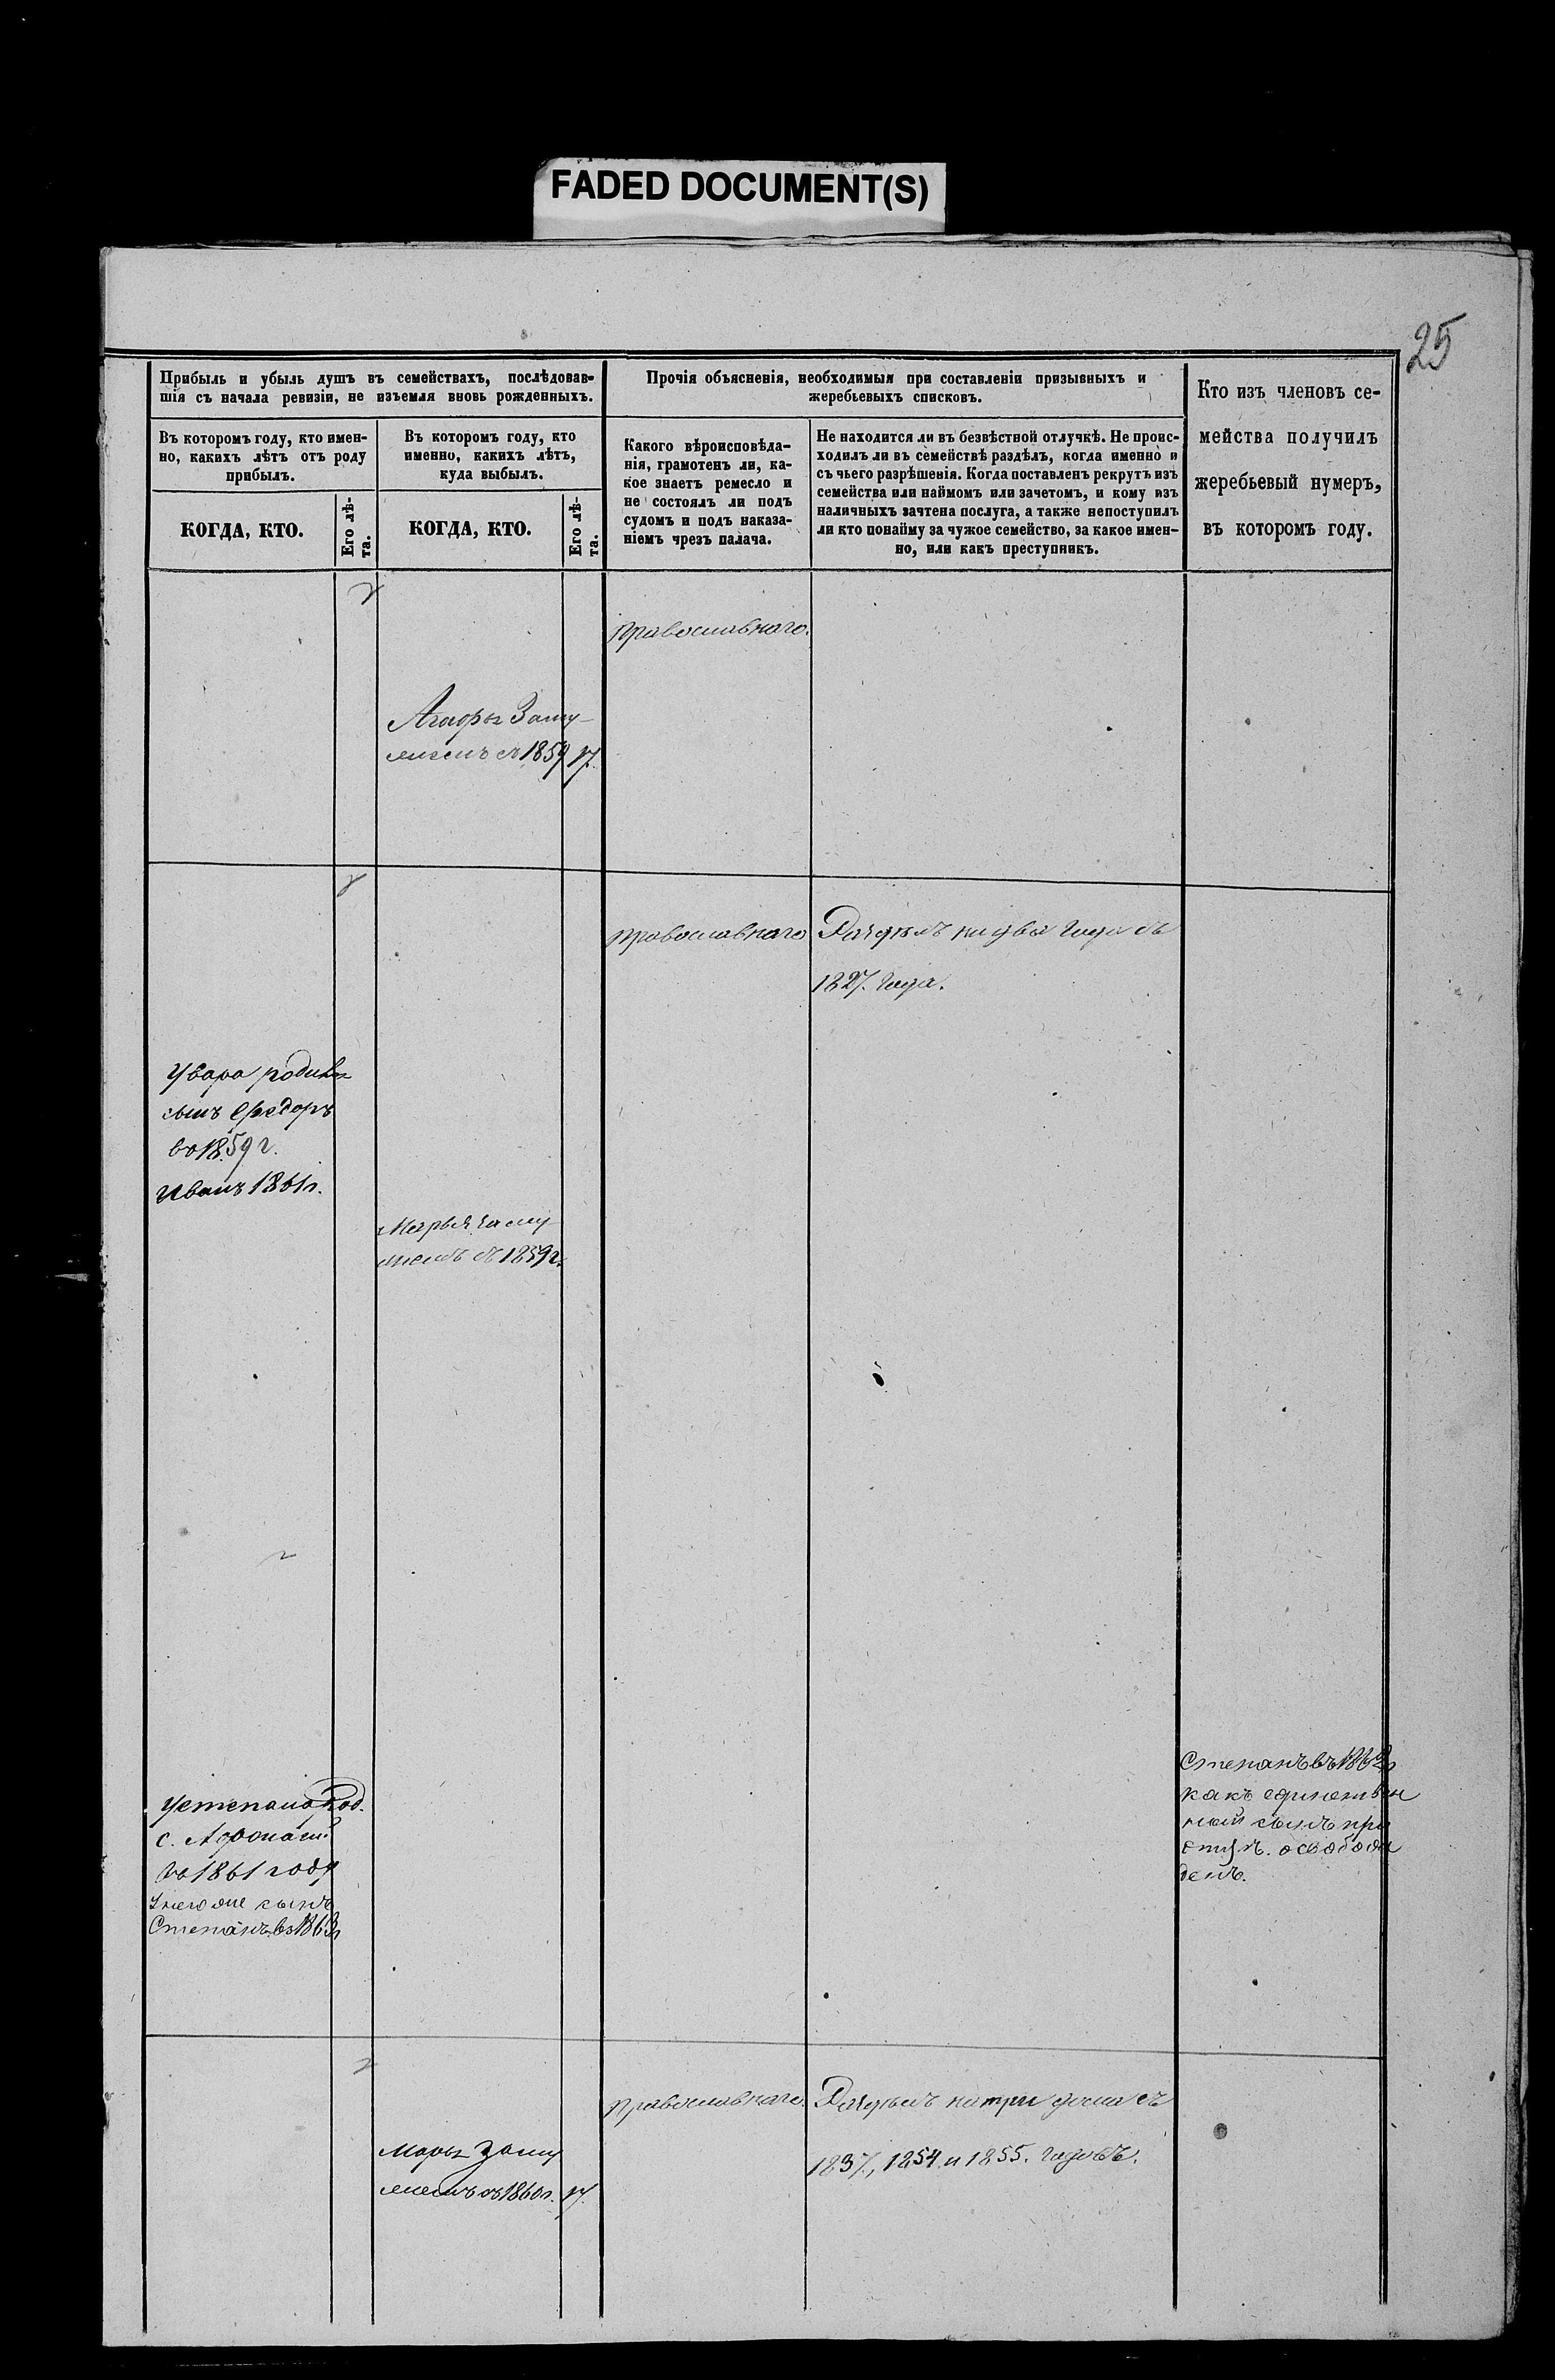 FADED DOCUMENT(S)
25
Прибыль и убыль душъ въ семействахъ, послѣдовав-
шія съ начала ревизіи, не изъемля вновь рожденныхъ.
Прочія объясненія, необходимыя при составленіи призывныхъ и
жеребьевыхъ списковъ.
Кто изъ членовъ се-
мейства получилъ
жеребьевый нумеръ,
въ которомъ году.
Въ которомъ году, кто имен-
но, какихъ лѣтъ отъ роду
прибылъ.
Въ которомъ году, кто
именно, какихъ лѣтъ,
куда выбылъ.
Какого вѣроисповѣда-
нія, грамотенъ ли, ка-
кое знаетъ ремесло и
не состоялъ ли подъ
судомъ и подъ наказа-
ніемъ чрезъ палача.
Не находится ли въ безвѣстной отлучкѣ. Не проис-
ходилъ ли въ семействѣ раздѣлъ, когда именно и
съ чьего разрѣшенія. Когда поставленъ рекрутъ изъ
семейства или наймомъ или зачетомъ, и кому изъ
наличныхъ зачтена послуга, а также непоступилъ
ли кто понайму за чужое семейство, за какое имен-
но, или какъ преступникъ.
КОГДА, КТО.
Его лѣ-
та.
КОГДА, КТО.
Его лѣ-
та.
Православнаго.
Заму-
жемъ съ 1859 17.
Православнаго
Раздѣлъ на два съ
1827. года.
Увара родил
сынъ Федоръ
во 1859 г.
Иванъ 1861 г.
Марья заму
жемъ съ 1859 г.
Степанъ въ
какъ единствен
ный сынъ при
освобож
денъ.
Устепана Род.
с. Афонасій
во 1861 году
Унего же сынъ
Степанъ
Православнаго.
Раздѣлъ на три дома съ
1837., 1854. и 1855. годовъ.
Заму
жемъ съ 1860 г. 17.